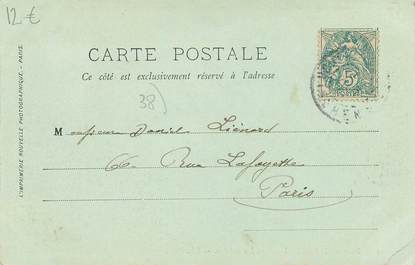 12 €
CARTE POSTALE
Ce côté est exclusivement réservé à l'adresse
38)
5c
Monsieur Daniel Liénard
6, Rue Lafayette
Paris
L'IMPRIMERIE NOUVELLE PHOTOGRAPHIQUE - PARIS